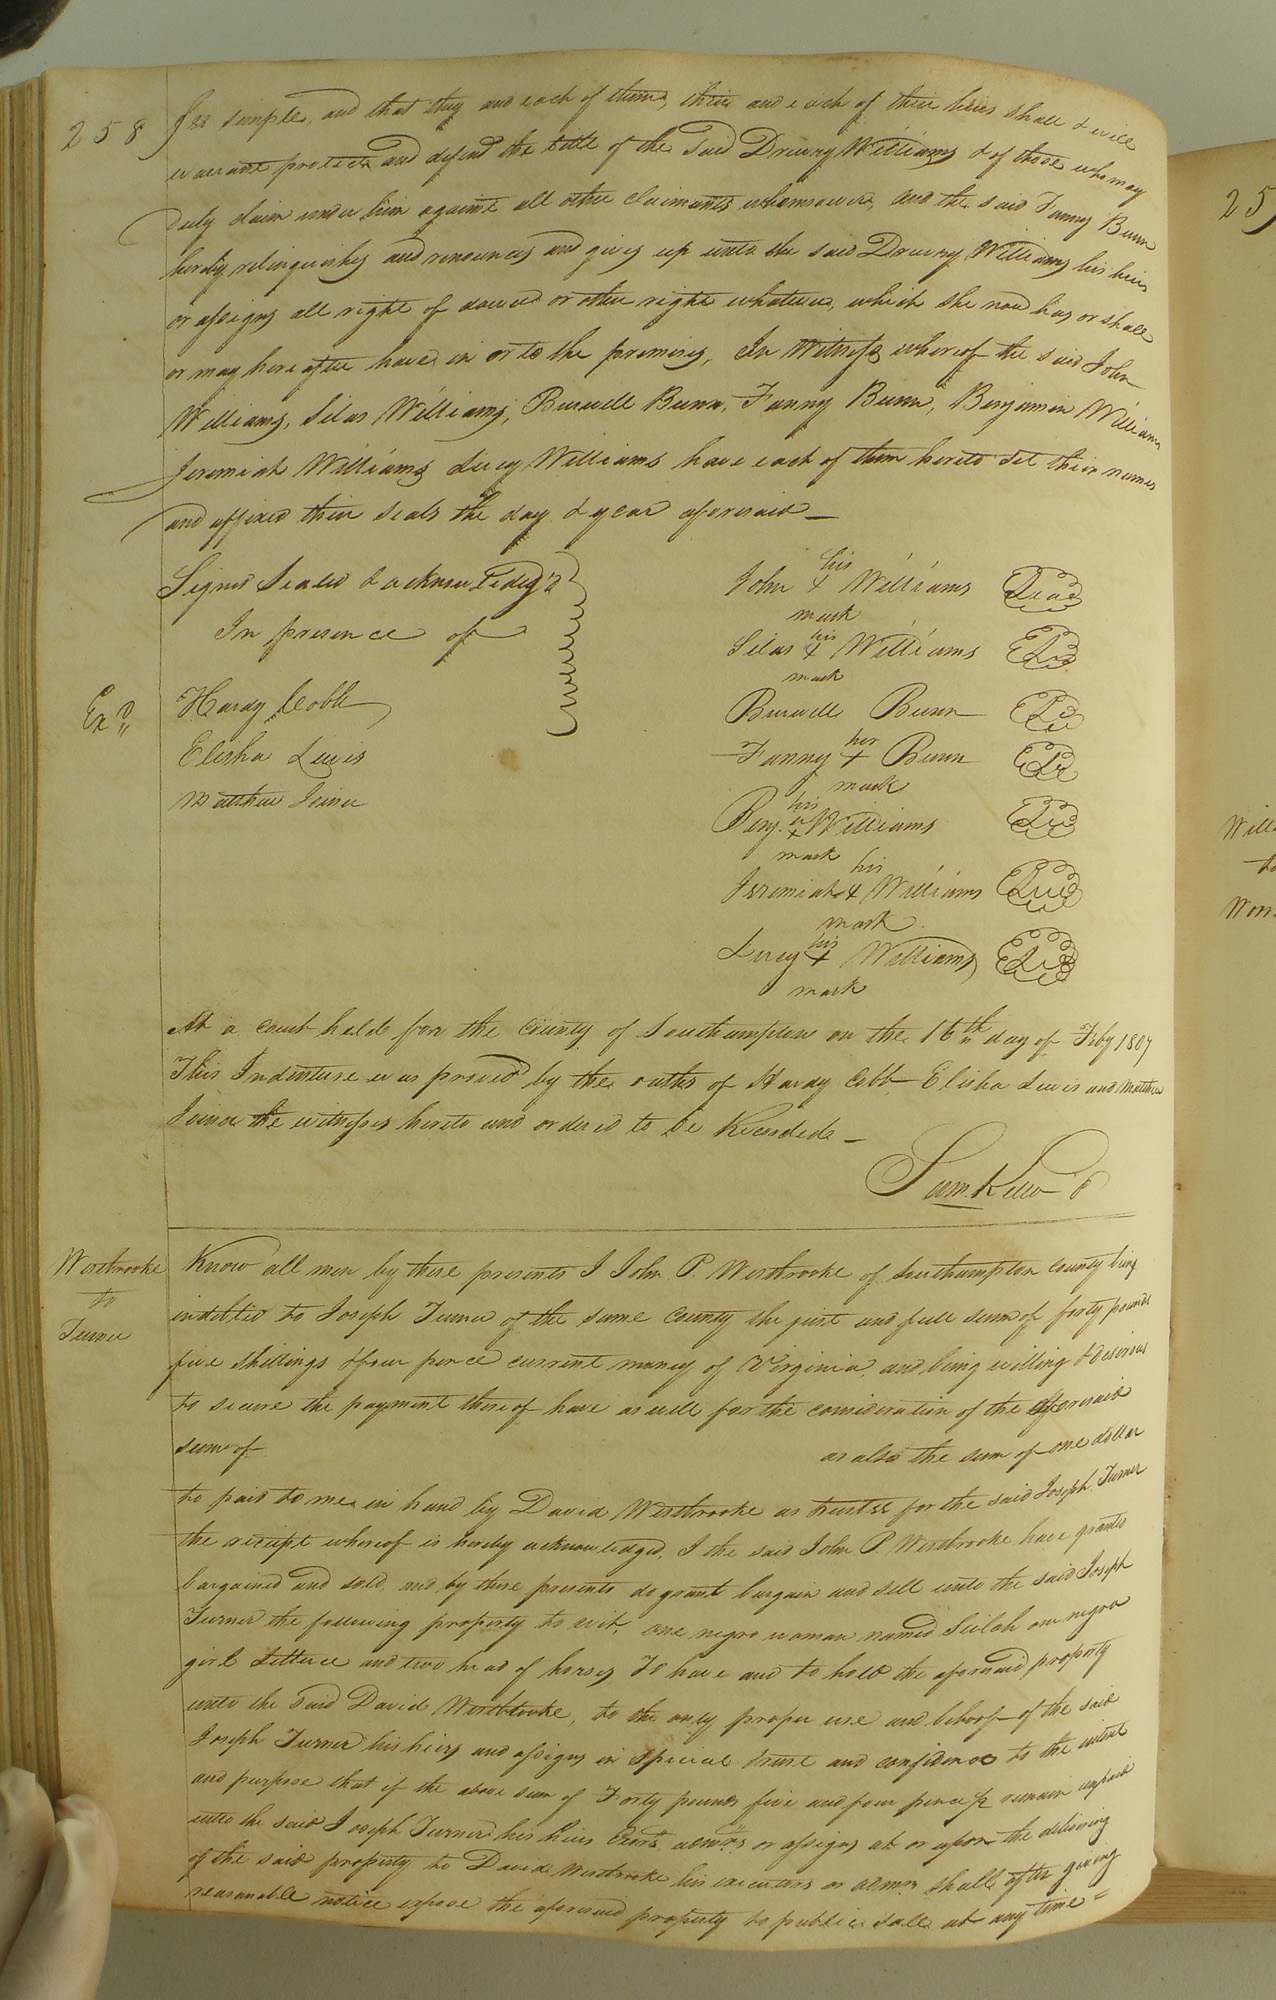 258
fee simple, and that they and each of them, their and each of their heirs shall & will
warrant protect and defend the title of the said Drewry Williams & of those who may
duly claim under him against all other claimants whomsoever, and the said Fanny Bunn
hereby relinquishes and renounces and gives up unto the said Drewry Williams his heirs
or assigns all right of dower or other right whatever, which she now has or shall
or may hereafter have in or to the premises, In Witness whereof the said John
Williams, Silas Williams, Burwell Bunn, Fanny Bunn, Benjamin Williams
Jeremiah Williams Lucy Williams have each of them hereto set their names
and affixed their seals the day & year aforesaid —
Signed Sealed & acknowledg'd
In presence of
Exd
Hardy Cobb
Elisha Lewis
Matthew Joiner
his
John + Williams Seal
mark
his
Silas + Williams
mark
Burwell Bunn
her
Fanny + Bunn
mark
his
Benj. + Williams
mark
his
Jeremiah + Williams
mark
his
Lucy + Williams
mark
At a court held for the county of Southampton on the 16th day of Feby 1807
This Indenture was proved by the oaths of Hardy Cobb Elisha Lewis and Matthew
Joiner the witnesses hereto and ordered to be Recorded —
Sam. Kello
Westbrooke
to
Turner
Know all men by these presents I John P. Westbrooke of Southampton County being
indebted to Joseph Turner of the same county the just and full sum of forty pounds
five shillings & four pence current money of Virginia, and being willing & desirous
to secure the payment thereof have as well for the consideration of the aforesaid
sum of as also the sum of one dollar
to paid to me in hand by David Westbrooke as trustee for the said Joseph Turner
the receipt whereof is hereby acknowledged, I the said John P. Westbrooke have granted
bargained and sold, and by these presents do grant bargain and sell unto the said Joseph
Turner the following property to wit, one negro woman named Seilah one negro
girl Lettuce and two head of horses To have and to hold the aforesaid property
unto the said David Westbrooke, to the only proper use and behoof of the said
Joseph Turner his heirs and assigns in special trust and confidence to the intent
and purpose that if the above sum of Forty pounds five and four pence remain unpaid
unto the said Joseph Turner his heirs Exors admors or assigns at or upon the delivering
of the said property to David Westbrooke his executors or admrs shall after giving
reasonable notice expose the aforesaid property to public sale at any time =
25
Will
to
Worr